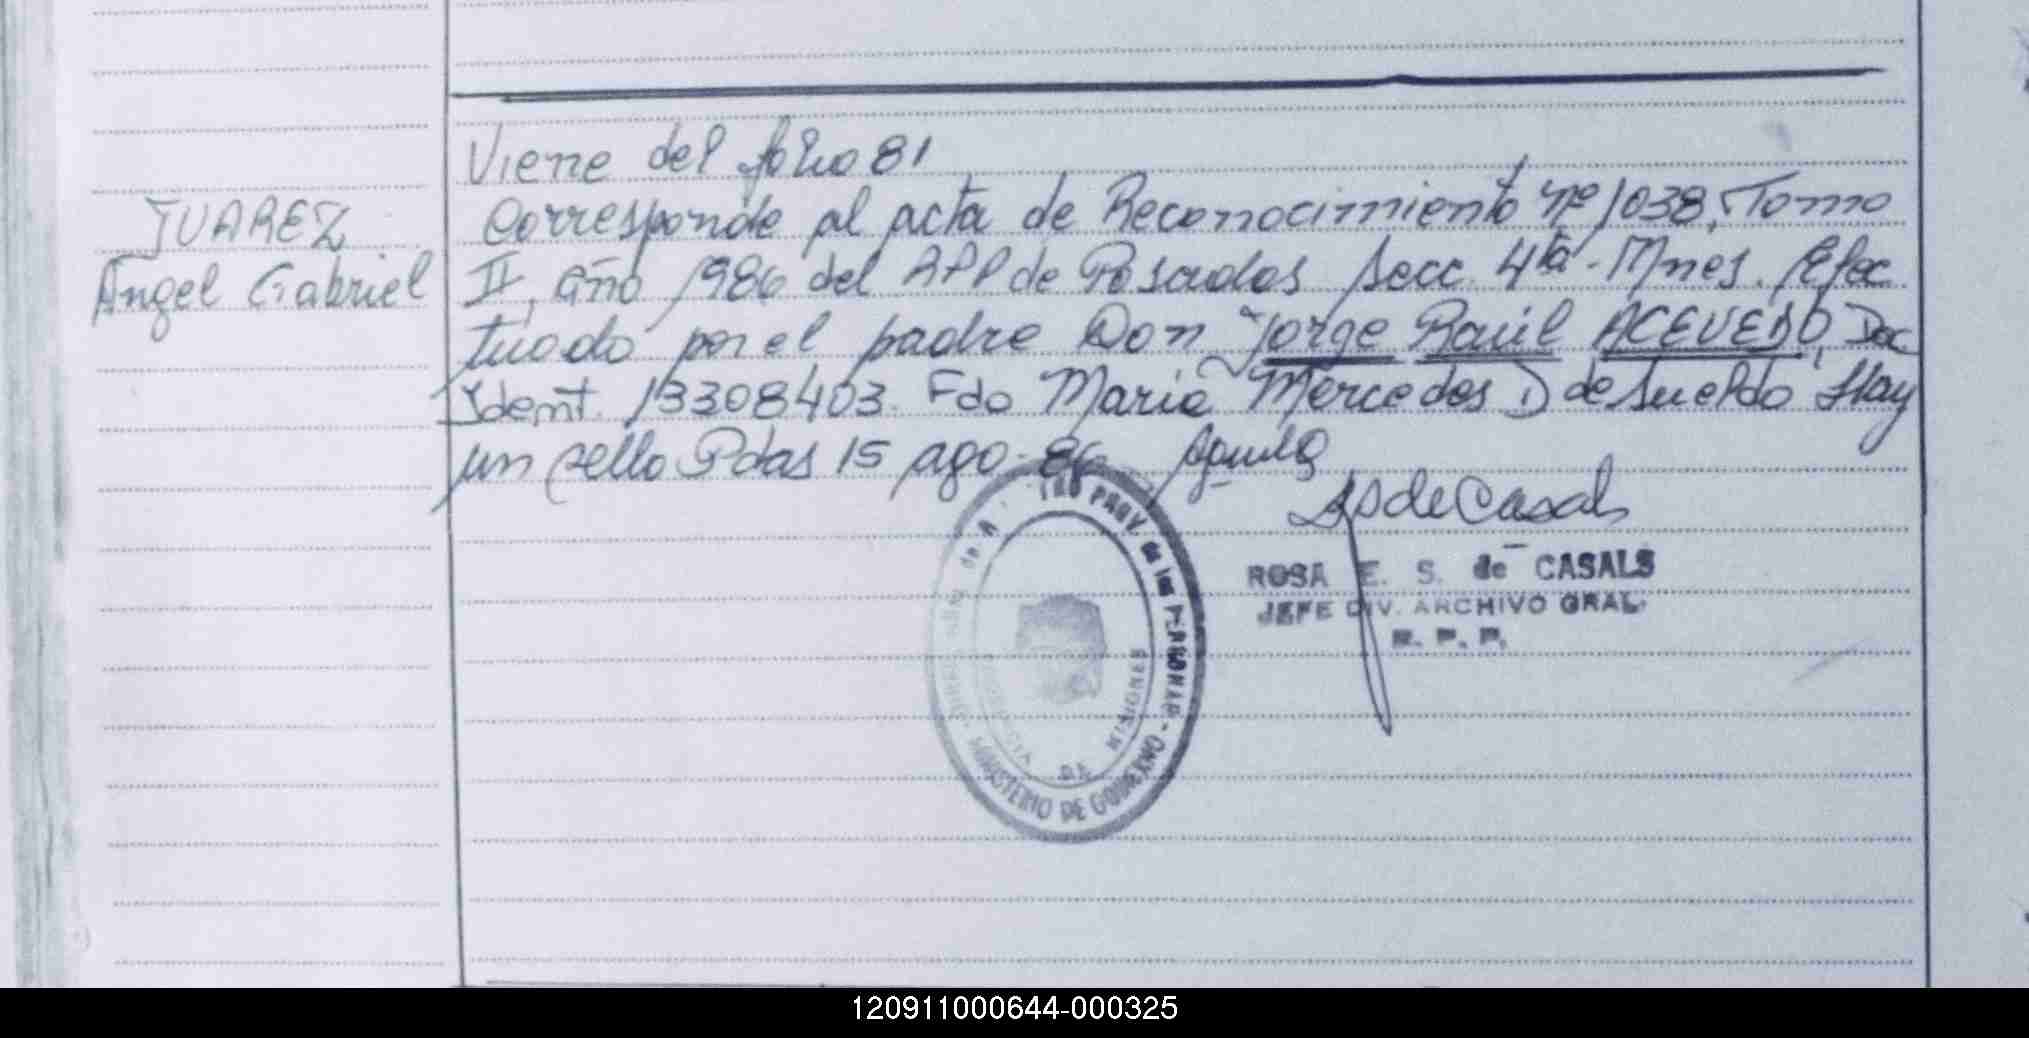 Viene del folio 81
JUAREZ
Angel Gabriel
Corresponde al acta de Reconocimiento nº 1038, Tomo
II, año 1986 del RPP de Posadas Secc. 4ta - Mnes. Efec
tuado por el padre Don Jorge Raúl ACEVEDO, Doc
Ident. 13308403. Fdo Maria Mercedes D de Sueldo Hay
un sello Pdas 15 ago. 86
ROSA E. S. de CASALS
JEFE DIV. ARCHIVO GRAL.
R. P. P.
PROV. de las PERSONAS - MINISTERIO DE GOBIERNO
PROVINCIA DE MISIONES
120911000644-000325